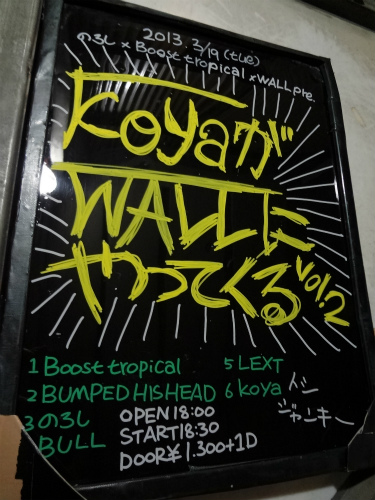 2013.3/19(tue)
のろし×Boost tropical×WALL pre.
koyaが
WALLに
やってくる
vol.2
1 Boost tropical
2 BUMPED HIS HEAD
3 のろし
BULL
5 LEXT
6 koya
イシ
ジャンキー
OPEN 18:00
START 18:30
DOOR¥1.300+1D